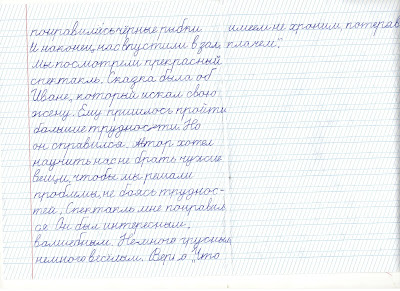 понравились чёрные рыбки.
И наконец, нас впустили в зал,
мы посмотрели прекрасный
спектакль. Сказка была об
Иване, который искал свою
жену. Ему пришлось пройти
большие трудности. Но
он справился. Автор хотел
научить нас не брать чужие
вещи, чтобы мы решали
проблемы, не боясь труднос-
тей. Спектакль мне понравил
ся. Он был интересным,
волшебным. Немного грустным,
немного весёлым. Верно „Что
имеем не храним, потеряв
плачем".